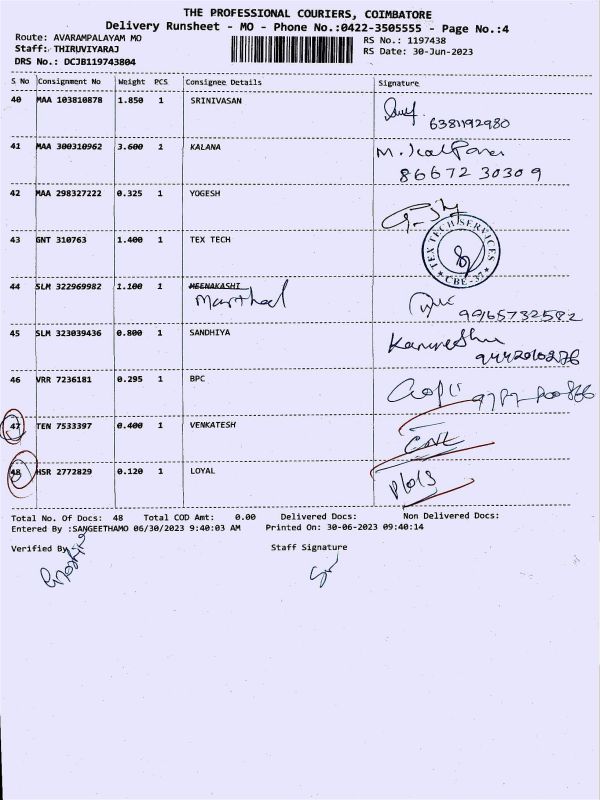 THE PROFESSIONAL COURIERS, COIMBATORE
Delivery Runsheet - MO - Phone No.:0422-3505555 - Page No.:4
Route: AVARAMPALAYAM MO
RS No.: 1197438
Staff: THIRUVIYARAJ
RS Date: 30-Jun-2023
DRS No.: DCJB119743804
S No Consignment No Weight PCS Consignee Details Signature
40 MAA 103810878 1.850 1 SRINIVASAN
6381192980
41 MAA 300310962 3.600 1 KALANA
86672 30309
42 MAA 298327222 0.325 1 YOGESH
43 GNT 310763 1.400 1 TEX TECH
TEX TECH SERVICES
CBE-37
44 SLM 322969982 1.100 1 MEENAKASHI
9965732582
45 SLM 323039436 0.800 1 SANDHIYA
46 VRR 7236181 0.295 1 BPC
47 TEN 7533397 0.400 1 VENKATESH
48 HSR 2772829 0.120 1 LOYAL
Total No. Of Docs: 48 Total COD Amt: 0.00 Delivered Docs: Non Delivered Docs:
Entered By :SANGEETHAMO 06/30/2023 9:40:03 AM Printed On: 30-06-2023 09:40:14
Verified By
Staff Signature